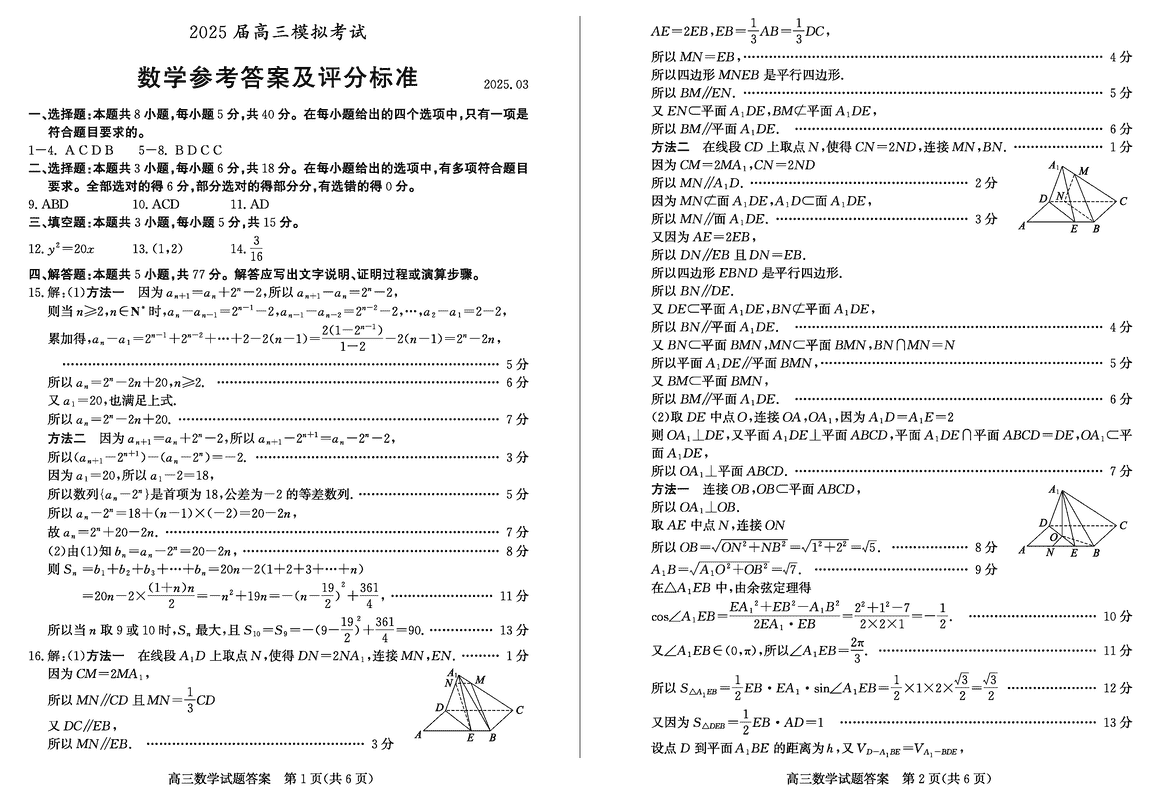 2025 届高三模拟考试
数学参考答案及评分标准 2025.03
一、选择题:本题共 8 小题,每小题 5 分,共 40 分。在每小题给出的四个选项中,只有一项是
符合题目要求的。
1—4. A C D B 5—8. B D C C
二、选择题:本题共 3 小题,每小题 6 分,共 18 分。在每小题给出的选项中,有多项符合题目
要求。全部选对的得 6 分,部分选对的得部分分,有选错的得 0 分。
9. ABD 10. ACD 11. AD
三、填空题:本题共 3 小题,每小题 5 分,共 15 分。
12. y²=20x 13. (1,2) 14. 3/16
四、解答题:本题共 5 小题,共 77 分。解答应写出文字说明、证明过程或演算步骤。
15. 解:(1)方法一 因为 aₙ₊₁=aₙ+2ⁿ−2,所以 aₙ₊₁−aₙ=2ⁿ−2,
则当 n≥2,n∈N* 时,aₙ−aₙ₋₁=2ⁿ⁻¹−2,aₙ₋₁−aₙ₋₂=2ⁿ⁻²−2,…,a₂−a₁=2−2,
累加得,aₙ−a₁=2ⁿ⁻¹+2ⁿ⁻²+…+2−2(n−1)=2(1−2ⁿ⁻¹)/(1−2)−2(n−1)=2ⁿ−2n,
…… 5 分
所以 aₙ=2ⁿ−2n+20,n≥2. …… 6 分
又 a₁=20,也满足上式.
所以 aₙ=2ⁿ−2n+20. …… 7 分
方法二 因为 aₙ₊₁=aₙ+2ⁿ−2,所以 aₙ₊₁−2ⁿ⁺¹=aₙ−2ⁿ−2,
所以(aₙ₊₁−2ⁿ⁺¹)−(aₙ−2ⁿ)=−2. …… 3 分
因为 a₁=20,所以 a₁−2=18,
所以数列{aₙ−2ⁿ}是首项为 18,公差为−2 的等差数列. …… 5 分
所以 aₙ−2ⁿ=18+(n−1)×(−2)=20−2n,
故 aₙ=2ⁿ+20−2n. …… 7 分
(2)由(1)知 bₙ=aₙ−2ⁿ=20−2n, …… 8 分
则 Sₙ=b₁+b₂+b₃+…+bₙ=20n−2(1+2+3+…+n)
=20n−2×(1+n)n/2=−n²+19n=−(n−19/2)²+361/4, …… 11 分
所以当 n 取 9 或 10 时,Sₙ 最大,且 S₁₀=S₉=−(9−19/2)²+361/4=90. …… 13 分
16. 解:(1)方法一 在线段 A₁D 上取点 N,使得 DN=2NA₁,连接 MN,EN. …… 1 分
因为 CM=2MA₁,
所以 MN∥CD 且MN=1/3CD
又 DC∥EB,
所以 MN∥EB. …… 3 分
A₁ N M D C A E B
高三数学试题答案 第 1 页(共 6 页)
AE=2EB,EB=1/3AB=1/3DC,
所以 MN=EB, …… 4 分
所以四边形 MNEB 是平行四边形.
所以 BM∥EN. …… 5 分
又 EN⊂平面 A₁DE,BM⊄平面 A₁DE,
所以 BM∥平面 A₁DE. …… 6 分
方法二 在线段 CD 上取点 N,使得 CN=2ND,连接 MN,BN. …… 1 分
因为 CM=2MA₁,CN=2ND
所以 MN∥A₁D. …… 2 分
因为 MN⊄面 A₁DE,A₁D⊂面 A₁DE,
所以 MN∥面 A₁DE. …… 3 分
又因为 AE=2EB,
所以 DN∥EB 且 DN=EB.
所以四边形 EBND 是平行四边形.
所以 BN∥DE.
又 DE⊂平面 A₁DE,BN⊄平面 A₁DE,
所以 BN∥平面 A₁DE. …… 4 分
又 BN⊂平面 BMN,MN⊂平面 BMN,BN∩MN=N
所以平面 A₁DE∥平面 BMN, …… 5 分
又 BM⊂平面 BMN,
所以 BM∥平面 A₁DE. …… 6 分
A₁ M D N C A E B
(2)取 DE 中点 O,连接 OA,OA₁,因为 A₁D=A₁E=2
则 OA₁⊥DE,又平面 A₁DE⊥平面 ABCD,平面 A₁DE∩平面 ABCD=DE,OA₁⊂平
面 A₁DE,
所以 OA₁⊥平面 ABCD. …… 7 分
方法一 连接 OB,OB⊂平面 ABCD,
所以 OA₁⊥OB.
取 AE 中点 N,连接 ON
所以 OB=√(ON²+NB²)=√(1²+2²)=√5. …… 8 分
A₁B=√(A₁O²+OB²)=√7. …… 9 分
A₁ D C O A N E B
在△A₁EB 中,由余弦定理得
cos∠A₁EB=(EA₁²+EB²−A₁B²)/(2EA₁·EB)=(2²+1²−7)/(2×2×1)=−1/2. …… 10 分
又∠A₁EB∈(0,π),所以∠A₁EB=2π/3. …… 11 分
所以 S△A₁EB=1/2EB·EA₁·sin∠A₁EB=1/2×1×2×√3/2=√3/2 …… 12 分
又因为 S△DEB=1/2EB·AD=1 …… 13 分
设点 D 到平面 A₁BE 的距离为 h,又 V_D−A₁BE=V_A₁−BDE,
高三数学试题答案 第 2 页(共 6 页)